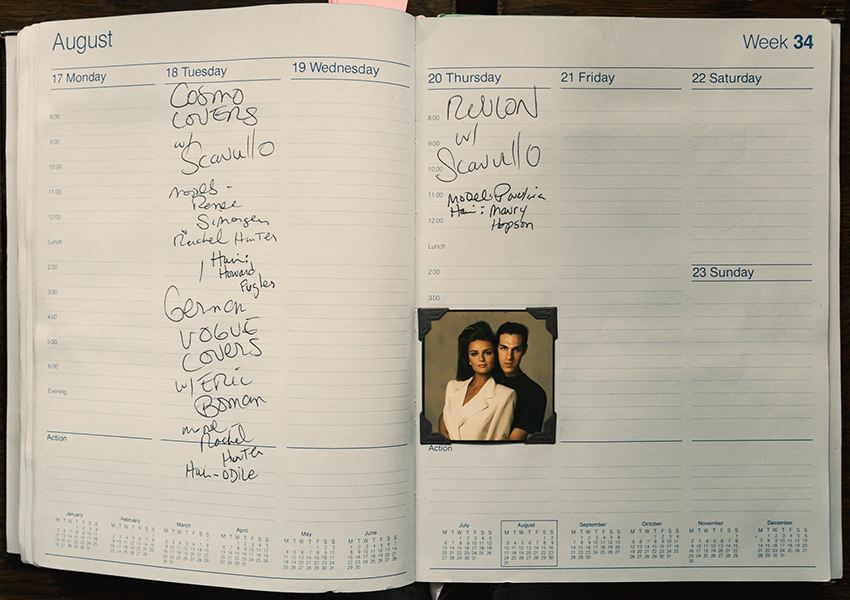 August
17 Monday
18 Tuesday
19 Wednesday
8.00
9.00
10.00
11.00
12.00
Lunch
2.00
3.00
4.00
5.00
6.00
Evening
Action
COSMO
COVERS
w/
Scavullo
model -
Renee
Simonsen
Rachel Hunter
Hair:
Howard
Fugler
German
VOGUE
COVERS
w/ ERIC
Boman
model
Rachel
Hunter
Hair - ODILE
January
February
March
April
May
June
Week 34
20 Thursday
21 Friday
22 Saturday
8.00
9.00
10.00
11.00
12.00
Lunch
2.00
3.00
REVLON
w/
Scavullo
Model: Paulina
Hair: Maury
Hopson
23 Sunday
Action
July
August
September
October
November
December